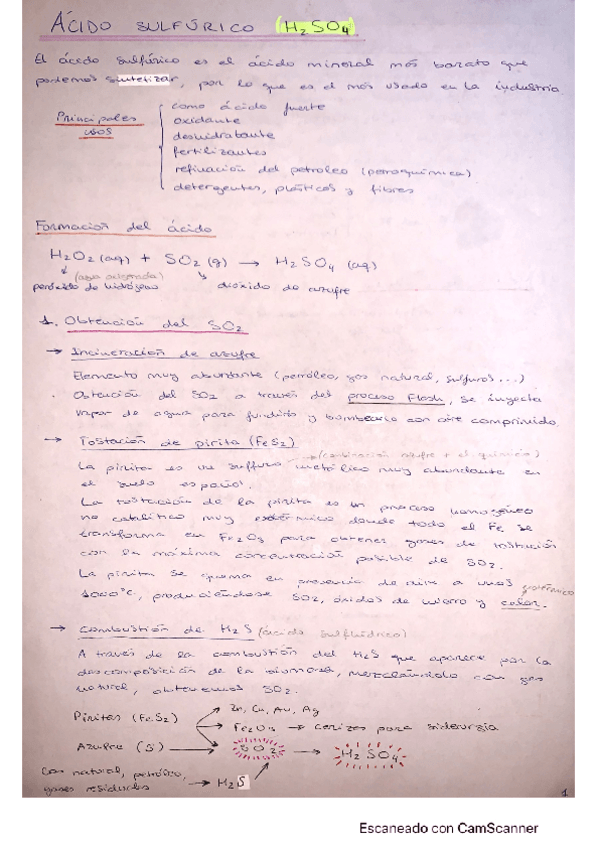 ÁCIDO SULFÚRICO (H2SO4)
El ácido sulfúrico es el ácido mineral más barato que
podemos sintetizar, por lo que es el más usado en la industria
Principales usos
como ácido fuerte
oxidante
deshidratante
fertilizantes
refinación del petroleo (petroquímica)
detergentes, plásticos y fibras
Formacion del ácido
H2O2 (aq) + SO2 (g) → H2SO4 (aq)
(agua oxigenada)
peróxido de hidrógeno
dióxido de azufre
1. Obtención del SO2
→ Incineración de azufre
Elemento muy abundante (petróleo, gas natural, sulfuros...)
Obtención del SO2 a través del proceso Flash, se inyecta
vapor de agua para fundirlo y bombearlo con aire comprimido.
→ Tostación de pirita (FeS2)
→(combinación azufre + el. químico)
La pirita es un sulfuro metálico muy abundante en
el suelo español.
La tostación de la pirita es un proceso homogéneo
no catalítico muy exotérmico donde todo el Fe se
transforma en Fe2O3 para obtener gases de tostación
con la máxima concentración posible de SO2.
La pirita se quema en presencia de aire a unos
1000°C, produciéndose SO2, óxidos de hierro y calor.
exotérmico
→ Combustión de H2S (ácido sulfhídrico)
A través de la combustión del H2S que aparece por la
descomposición de la biomasa, mezclándolo con gas
natural, obtenemos SO2.
Piritas (FeS2)
Zn, Cu, Au, Ag
Fe2O3 → cenizas para siderurgia
Azufre (S) → SO2 → H2SO4
Gas natural, petróleo,
gases residuales → H2S
1
Escaneado con CamScanner